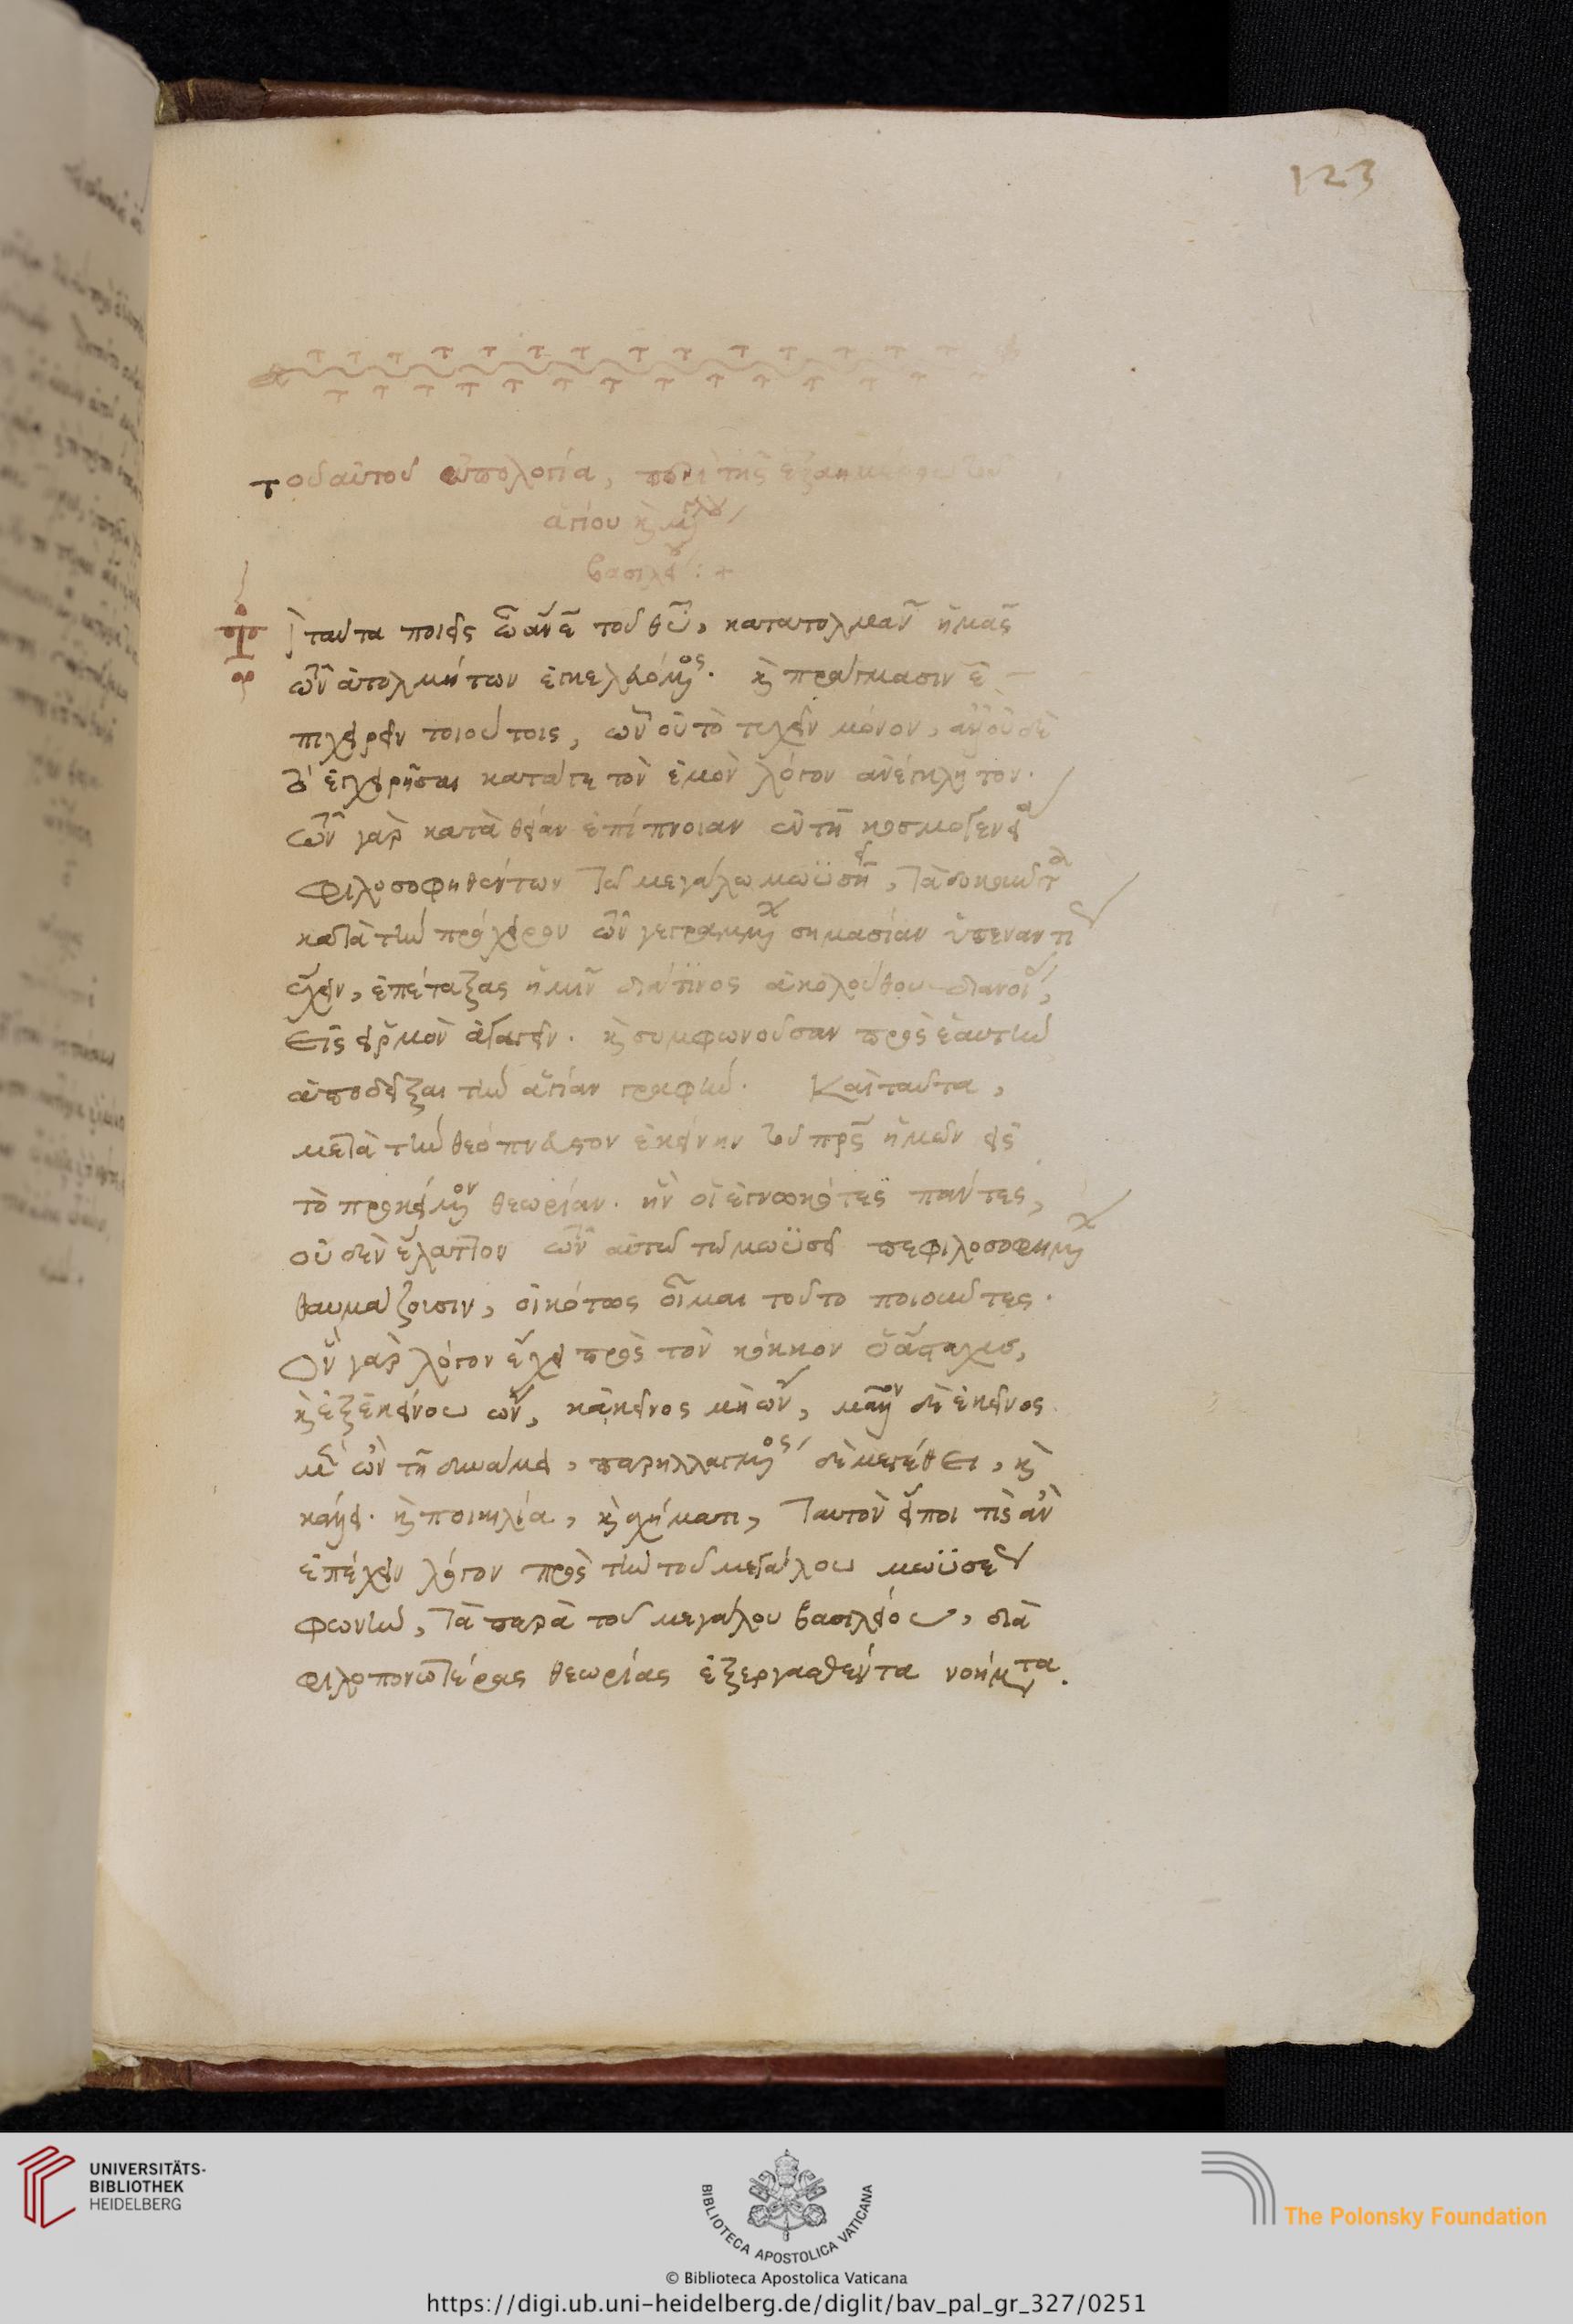 123
τοῦ αὐτοῦ ἀπολογία, περὶ τῆς ἑξαημέρου τοῦ
ἁγίου κ̀ μεγάλου
βασιλείου : +
Τί ταῦτα ποιεῖς ὦ ἄν̅ε̅ τοῦ θ̅υ̅, κατατολμᾶν ἡμᾶς
τῶν ἀτολμήτων ἐγκελευόμενος· κ̀ πράγμασιν ἐ
πιχειρεῖν τοιούτοις, ὧν οὐ τὸ τυχεῖν μόνον, ἀλλ' οὐδὲ
τὸ ἐγχειρῆσαι κατά γε τὸν ἐμὸν λόγον ἀνέγκλητον.
τῶν γὰρ κατὰ θείαν ἐπίπνοιαν ἐν τῇ κοσμογενείᾳ
φιλοσοφηθέντων τῷ μεγάλῳ μωϋσῇ, τὰ δοκοῦντα
κατὰ τὴν πρόχειρον τῶν γεγραμμένων σημασίαν ὑπεναντίως
ἔχειν, ἐπέταξας ἡμῖν διά τινος ἀκολούθου διανοίας,
εἰς εἱρμὸν ἀγαγεῖν. κ̀ συμφωνοῦσαν πρὸς ἑαυτὴν
ἀποδεῖξαι τὴν ἁγίαν γραφήν. Καὶ ταῦτα,
μετὰ τὴν θεόπνευστον ἐκείνην τοῦ π̅ρ̅ς̅ ἡμῶν εἰς
τὸ προκείμενον θεωρίαν. ἣν οἱ ἐγνωκότες πάντες,
οὐδὲν ἔλαττον τῶν αὐτῷ τῷ μωϋσεῖ πεφιλοσοφημένων
θαυμάζουσιν, εἰκότως οἶμαι τοῦτο ποιοῦντες.
Ὃν γὰρ λόγον ἔχει πρὸς τὸν κόκκον ὁ ἄσταχυς,
κ̀ ἐξ ἐκείνου ὢν, κἀκεῖνος μὴ ὢν, μᾶλλον δὲ ἐκεῖνος
μὲν ὢν τῇ δυνάμει, παρηλλαγμένος δὲ μεγέθει, κ̀
κάλλει. κ̀ ποικιλίᾳ, κ̀ σχήματι, τὸ αὐτὸν εἴποι τις ἂν
ἐπέχειν λόγον πρὸς τὴν τοῦ μεγάλου μωϋσέως
φωνὴν, τὰ παρὰ τοῦ μεγάλου βασιλείου, διὰ
φιλοπονωτέρας θεωρίας ἐξεργασθέντα νοήματα.
UNIVERSITÄTS-
BIBLIOTHEK
HEIDELBERG
BIBLIOTECA APOSTOLICA VATICANA
The Polonsky Foundation
© Biblioteca Apostolica Vaticana
https://digi.ub.uni-heidelberg.de/diglit/bav_pal_gr_327/0251